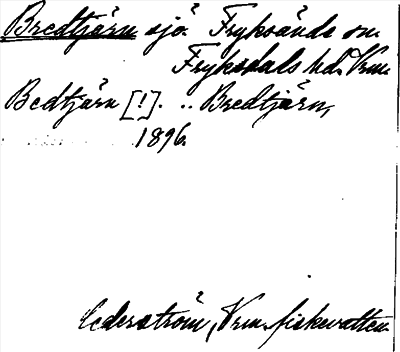 Bredtjärn sjö. Fryksände sn.
Fryksdals hd. Vrm.
Bedtjärn [!]. .. Bredtjärn,
1896.
Cederström, Vrm. fiskevatten